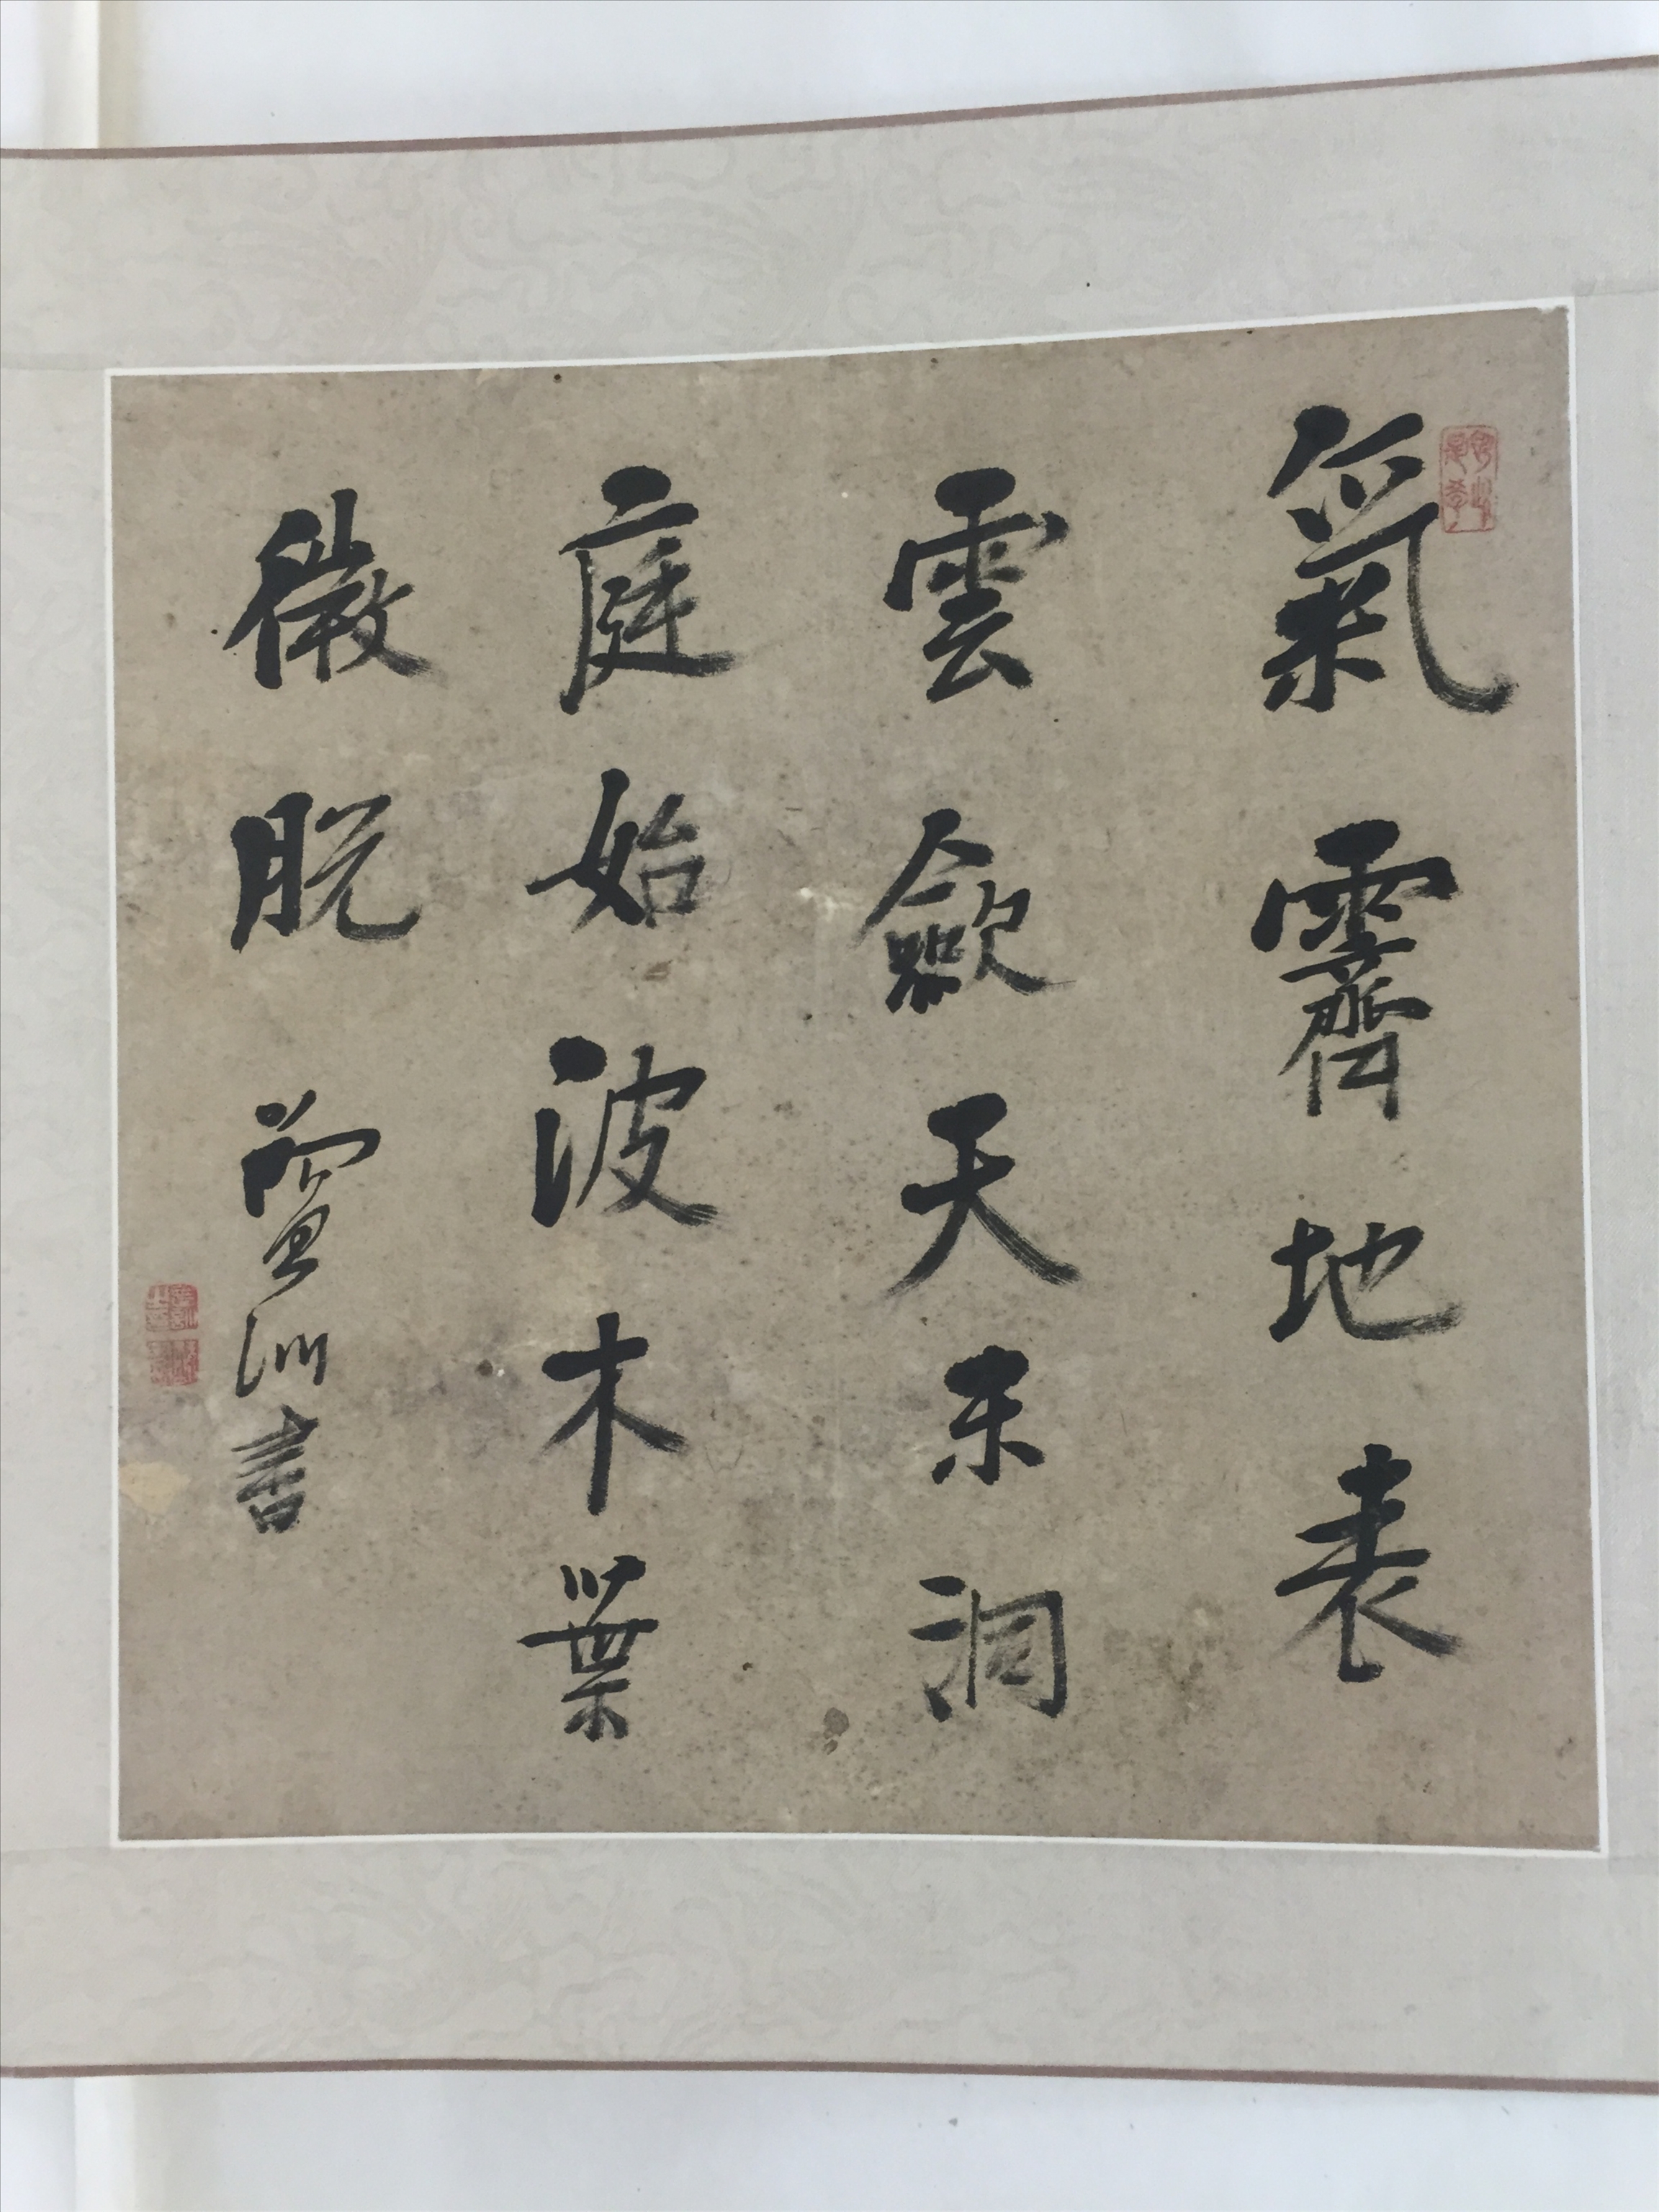 氣霽地表
雲歛天末洞
庭始波木葉
微脫
書